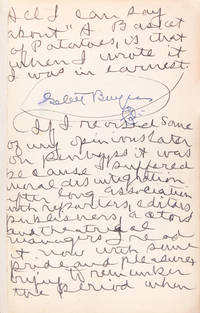 All I can say
about "A Basket
of Potatoes, is that
when I wrote it
I was in earnest.
Gelett Burgess
If I revised some
of my opinions later
on perhaps it was
because I suffered
moral disintegration
after long association
with reporters, editors
publishers, actors
and theatrical
managers. I read
it now with some
pride and pleasure,
trying to remember
the period when